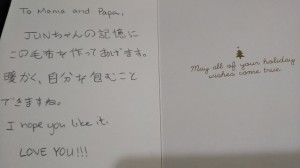 To Mama and Papa,
JUNちゃんの記憶に
この毛布を作ってあげます。
暖かく、自分を包むこと
できますね。
I hope you like it.
LOVE YOU!!!
May all of your holiday
wishes come true